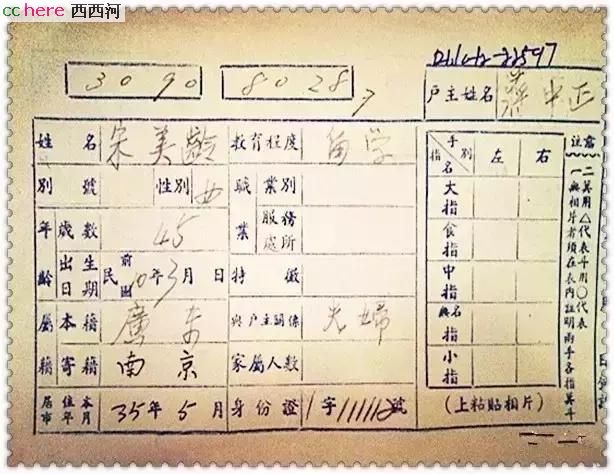 cchere 西西河
3090 80287
戶主姓名 蔣中正
姓名 宋美齡 教育程度 留学
別號 性別 女 職業 業別
服務處所
年齡 歲數 45
出生日期 民前國 年3月 日 特徵
屬籍 本籍 廣东 與戶主關係 夫婦
寄籍 南京 家屬人數
居住本市年月 35年5月 身份證 字 號
手別 指名 左 右
大指
食指
中指
無名指
小指
(上粘貼相片)
註
二 箕用△代表斗用〇代表
一 無相片者須在表內註明兩手各指箕斗